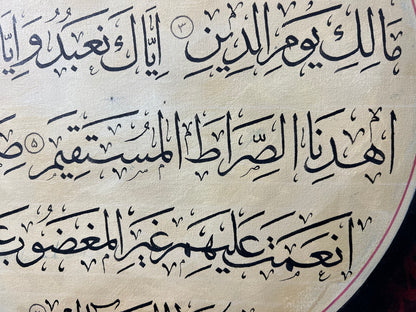 مَالِكِ يَوْمِ الدِّينِ ۳ اِيَّاكَ نَعْبُدُ وَاِيَّا
اِهْدِنَا الصِّرَاطَ الْمُسْتَقِيمَ ۵ صِ
اَنْعَمْتَ عَلَيْهِمْ غَيْرِ الْمَغْضُوبِ عَ